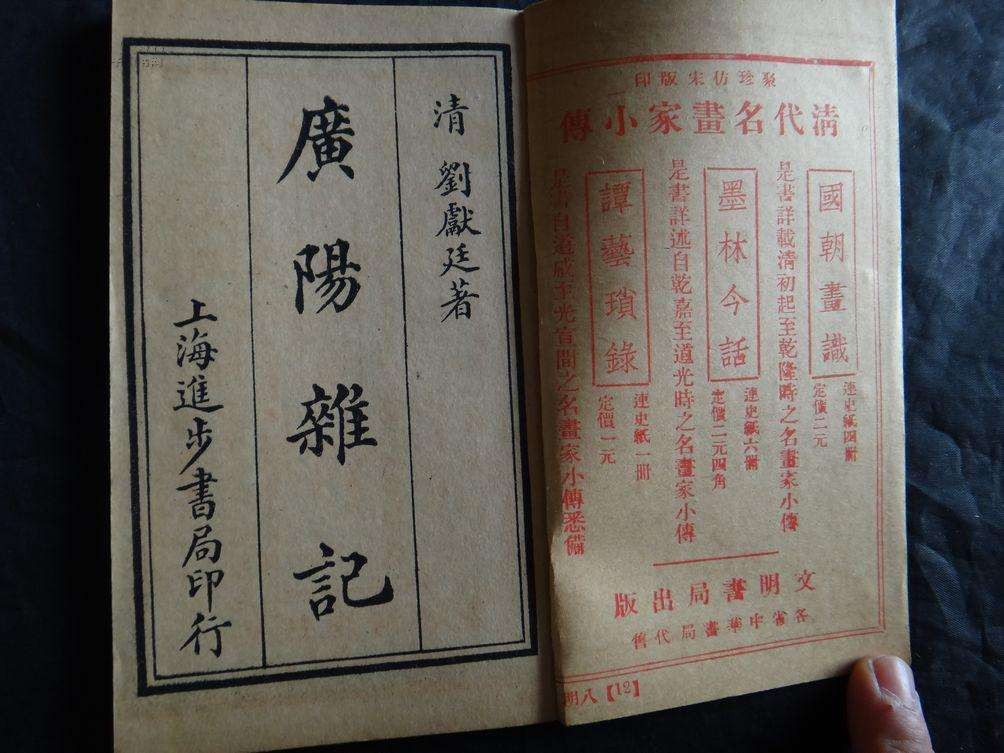 聚珍仿宋版印
清代名畫家小傳
國朝畫識
連史紙四冊
定價二元
是書詳載清初起至乾隆時之名畫家小傳
墨林今話
連史紙六冊
定價二元四角
是書詳述自乾嘉至道光時之名畫家小傳
譚藝瑣錄
連史紙一冊
定價一元
是書自道咸至光宣間之名畫家小傳悉備
文明書局出版
各省中華書局代售
明八【12】
清 劉獻廷著
廣陽雜記
上海進步書局印行